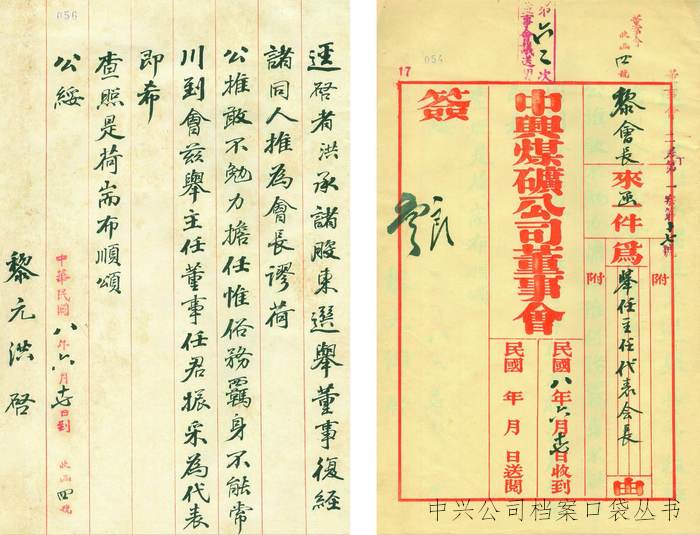 056
逕啓者洪承諸股東選舉董事復經
諸同人推為會長謬荷
公推敢不勉力擔任惟俗務羈身不能常
川到會兹舉主任董事任君振采為代表
即希
查照是荷耑布順頌
公綏
中華民國八年六月 日到 收函四號
黎元洪啓
董事會
收函四號
第六二次
董事會議送閱
054
17
黎會長來函件爲舉任主任代表会長由
附
附
中興煤礦公司董事會
民國八年六月 日收到
民國 年 月 日送閱
簽
中兴公司档案口袋丛书